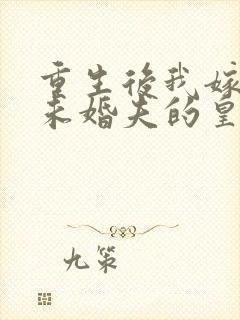 重生後我嫁
未婚夫的皇
九策